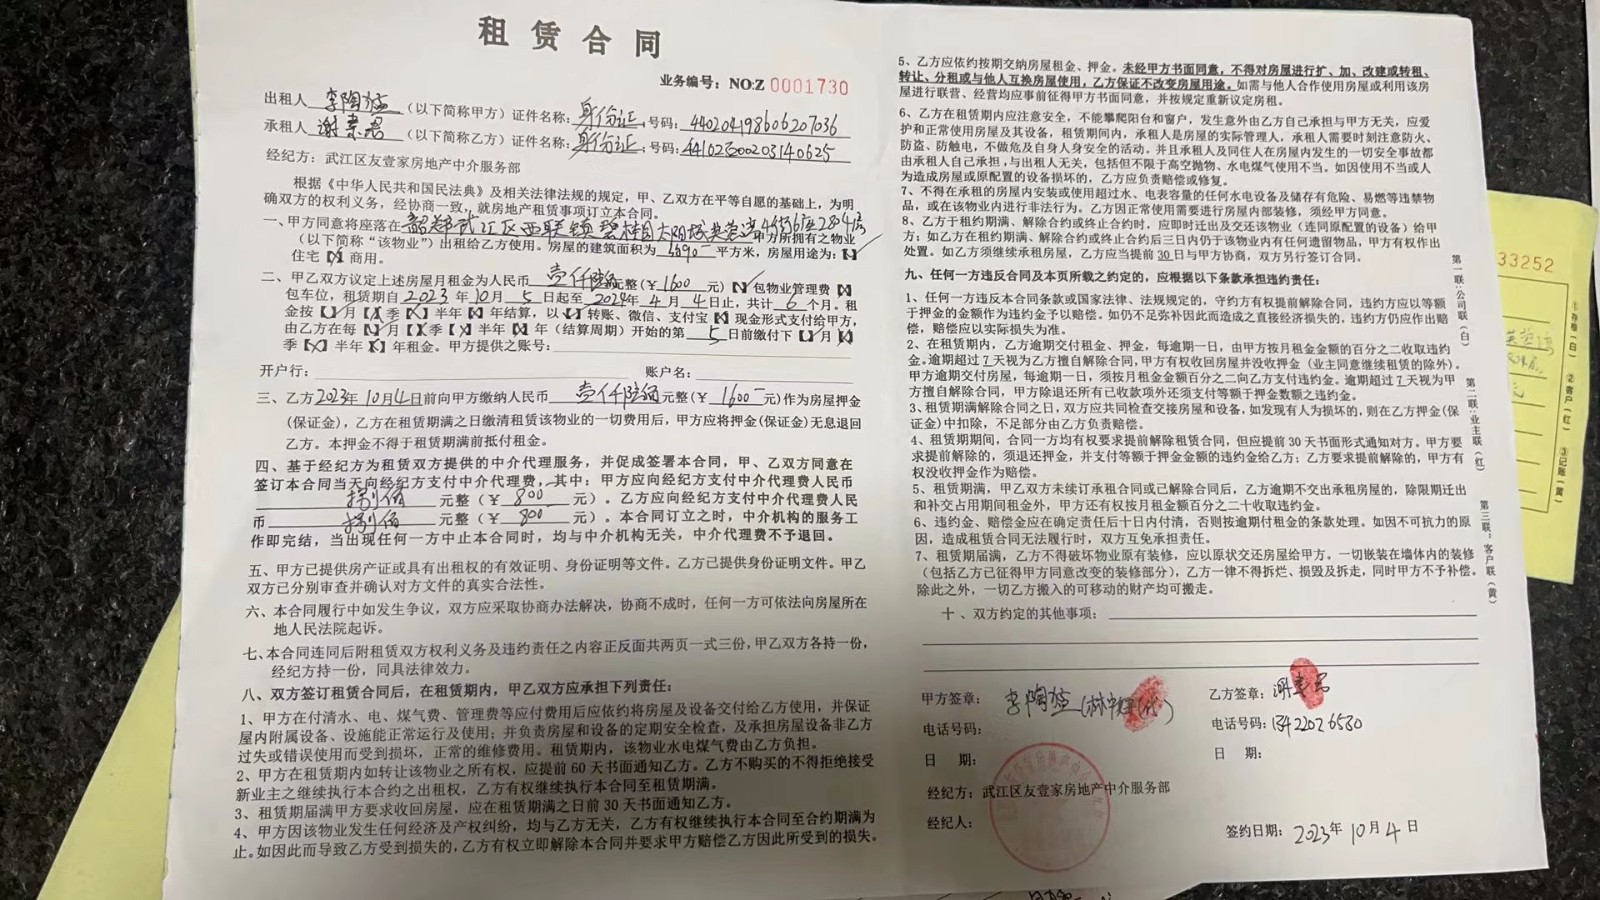 租赁合同
业务编号：NO:Z 0001730
出租人 李陶 （以下简称甲方）证件名称：身份证；号码：440204198606207036
承租人 谢素君 （以下简称乙方）证件名称：身份证；号码：441023000203140625
经纪方：武江区友壹家房地产中介服务部
根据《中华人民共和国民法典》及相关法律法规的规定，甲、乙双方在平等自愿的基础上，为明
确双方的权利义务，经协商一致，就房地产租赁事项订立本合同。
一、甲方同意将座落在韶关市武江区西联镇碧桂园太阳城芙蓉湾 2804房 甲方所拥有之物业
（以下简称“该物业”）出租给乙方使用。房屋的建筑面积为 平方米，房屋用途为：【√】
住宅【X】商用。
二、甲乙双方议定上述房屋月租金为人民币 壹仟陆佰 元整（￥1600 元）【√】包物业管理费【X】
包车位，租赁期自 2023 年 10 月 5 日起至 2024 年 4 月 4 日止，共计 6 个月。租
金按【√】月【X】季【X】半年【X】年结算，以【√】转账、微信、支付宝【X】现金形式支付给甲方，
由乙方在每【√】月【X】季【X】半年【X】年（结算周期）开始的第 5 日前缴付下【√】月【X】
季【X】半年【X】年租金。甲方提供之账号：
开户行： 账户名：
三、乙方2023年10月4日前向甲方缴纳人民币 壹仟陆佰 元整（￥1600 元）作为房屋押金
（保证金），乙方在租赁期满之日缴清租赁该物业的一切费用后，甲方应将押金（保证金）无息退回
乙方。本押金不得于租赁期满前抵付租金。
四、基于经纪方为租赁双方提供的中介代理服务，并促成签署本合同，甲、乙双方同意在
签订本合同当天向经纪方支付中介代理费，其中：甲方应向经纪方支付中介代理费人民币
捌佰 元整（￥ 800 元）。乙方应向经纪方支付中介代理费人民
币 捌佰 元整（￥ 800 元）。本合同订立之时，中介机构的服务工
作即完结，当出现任何一方中止本合同时，均与中介机构无关，中介代理费不予退回。
五、甲方已提供房产证或具有出租权的有效证明、身份证明等文件。乙方已提供身份证明文件。甲乙
双方已分别审查并确认对方文件的真实合法性。
六、本合同履行中如发生争议，双方应采取协商办法解决，协商不成时，任何一方可依法向房屋所在
地人民法院起诉。
七、本合同连同后附租赁双方权利义务及违约责任之内容正反面共两页一式三份，甲乙双方各持一份，
经纪方持一份，同具法律效力。
八、双方签订租赁合同后，在租赁期内，甲乙双方应承担下列责任：
1、甲方在付清水、电、煤气费、管理费等应付费用后应依约将房屋及设备交付给乙方使用，并保证
屋内附属设备、设施能正常运行及使用；并负责房屋和设备的定期安全检查，及承担房屋设备非乙方
过失或错误使用而受到损坏，正常的维修费用。租赁期内，该物业水电煤气费由乙方负担。
2、甲方在租赁期内如转让该物业之所有权，应提前 60 天书面通知乙方。乙方不购买的不得拒绝接受
新业主之继续执行本合约之出租权，乙方有权继续执行本合同至租赁期满。
3、租赁期届满甲方要求收回房屋，应在租赁期满之日前 30 天书面通知乙方。
4、甲方因该物业发生任何经济及产权纠纷，均与乙方无关，乙方有权继续执行本合同至合约期满为
止。如因此而导致乙方受到损失的，乙方有权立即解除本合同并要求甲方赔偿乙方因此所受到的损失。
5、乙方应依约按期交纳房屋租金、押金。未经甲方书面同意，不得对房屋进行扩、加、改建或转租、
转让、分租或与他人互换房屋使用，乙方保证不改变房屋用途。如需与他人合作使用房屋或利用该房
屋进行联营、经营均应事前征得甲方书面同意，并按规定重新议定房租。
6、乙方在租赁期内应注意安全，不能攀爬阳台和窗户，发生意外由乙方自己承担与甲方无关，应爱
护和正常使用房屋及其设备，租赁期间内，承租人是房屋的实际管理人，承租人需要时刻注意防火、
防盗、防触电，不做危及自身人身安全的活动。并且承租人及同住人在房屋内发生的一切安全事故都
由承租人自己承担，与出租人无关，包括但不限于高空抛物、水电煤气使用不当。如因使用不当或人
为造成房屋或原配置的设备损坏的，乙方应负责赔偿或修复。
7、不得在承租的房屋内安装或使用超过水、电表容量的任何水电设备及储存有危险、易燃等违禁物
品，或在该物业内进行非法行为。乙方因正常使用需要进行房屋内部装修，须经甲方同意。
8、乙方于租约期满、解除合约或终止合约时，应即时迁出及交还该物业（连同原配置的设备）给甲
方；如乙方在租约期满、解除合约或终止合约后三日内仍于该物业内有任何遗留物品，甲方有权作出
处置。如乙方须继续承租房屋，乙方应当提前 30 日与甲方协商，双方另行签订合同。
九、任何一方违反合同及本页所载之约定的，应根据以下条款承担违约责任：
1、任何一方违反本合同条款或国家法律、法规规定的，守约方有权提前解除合同，违约方应以等额
于押金的金额作为违约金予以赔偿。如仍不足弥补因此而造成之直接经济损失的，违约方仍应作出赔
偿，赔偿应以实际损失为准。
2、在租赁期内，乙方逾期交付租金、押金，每逾期一日，由甲方按月租金金额的百分之二收取违约
金。逾期超过 7 天视为乙方擅自解除合同，甲方有权收回房屋并没收押金（业主同意继续租赁的除外）。
甲方逾期交付房屋，每逾期一日，须按月租金金额百分之二向乙方支付违约金。逾期超过 7 天视为甲
方擅自解除合同，甲方除退还所有已收款项外还须支付等额于押金数额之违约金。
3、租赁期满解除合同之日，双方应共同检查交接房屋和设备，如发现有人为损坏的，则在乙方押金（保
证金）中扣除，不足部分由乙方负责赔偿。
4、租赁期期间，合同一方均有权要求提前解除租赁合同，但应提前 30 天书面形式通知对方。甲方要
求提前解除的，须退还押金，并支付等额于押金金额的违约金给乙方；乙方要求提前解除的，甲方有
权没收押金作为赔偿。
5、租赁期满，甲乙双方未续订承租合同或已解除合同后，乙方逾期不交出承租房屋的，除限期迁出
和补交占用期间租金外，甲方还有权按月租金额百分之二十收取违约金。
6、违约金、赔偿金应在确定责任后十日内付清，否则按逾期付租金的条款处理。如因不可抗力的原
因，造成租赁合同无法履行时，双方互免承担责任。
7、租赁期届满，乙方不得破坏物业原有装修，应以原状交还房屋给甲方。一切嵌装在墙体内的装修
（包括乙方已征得甲方同意改变的装修部分），乙方一律不得拆烂、损毁及拆走，同时甲方不予补偿。
除此之外，一切乙方搬入的可移动的财产均可搬走。
十、双方约定的其他事项：
甲方签章：李陶 （代） 乙方签章：谢素君
电话号码： 电话号码：13422026580
日 期： 日 期：
经纪方：武江区友壹家房地产中介服务部
经纪人：
签约日期：2023年10月4日
第一联：公司联（白）
第二联：业主联（红）
第三联：客户联（黄）
33252
①存根（白） ②客户（红） ③记账（黄）